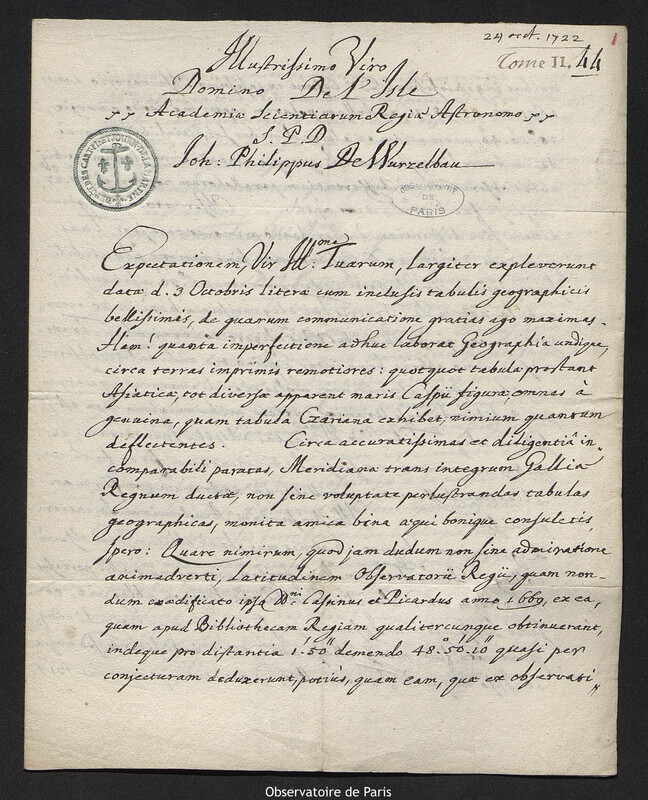 24 oct. 1722
Tome II. 44
1
Illustrissimo Viro
Domino De l'Isle
Academiæ Scientiarum Regiæ Astronomo
S. P. D
Joh: Philippus De Wurzelbau
DEPOT DES CARTES ET JOURNAUX DE LA MARINE
OBSERVATOIRE
DE
PARIS
Expectationem, Vir Ill:me Tuarum, largiter expleverunt
datæ d. 3 Octobris literæ cum inclusis tabulis geographicis
bellissimis, de quarum communicatione gratias ago maximas.
Ham! quanta imperfectione adhuc laborat Geographia undique,
circa terras imprimis remotiores: quotquot tabulæ prostant
Asiaticæ, tot diversæ apparent maris Caspii figuræ, omnes à
genuina, quam tabula Czariana exhibet, nimium quantum
deflectentes. Circa accuratissimas et diligentiâ in„
comparabili paratas, Meridianæ trans integrum Galliæ
Regnum ductæ, non sine voluptate perlustrandas tabulas
geographicas, monita amica bina æqui bonique consuletis
spero: Quare nimirum, quod jam dudum non sine admiratione
animadverti, Latitudinem Observatorii Regii, quam non-
dum exædificato ipsa DD.ni Cassinus et Picardus anno 1669, ex ea,
quam apud Bibliothecam Regiam qualitercunque obtinuerant,
indeque pro distantia 1'.50" demendo 48°.50'.10" quasi per
conjecturam deduxerunt, potius, quam eam, quæ ex observati„
Observatoire de Paris